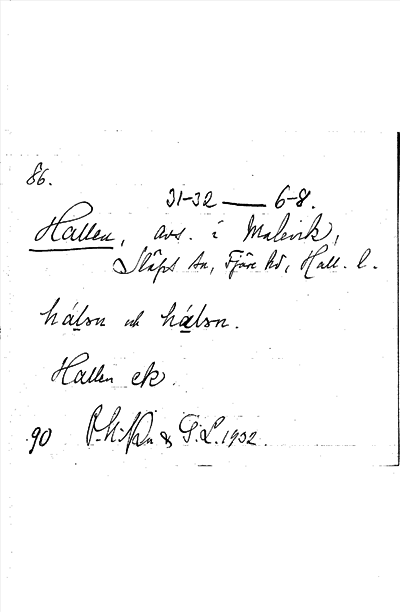 86.
31-32 — 6-8.
Hallen, avs. i Malevik,
Släps sn, Fjäre hd, Hall. l.
hálən och hálən.
Hallen ek
90 & G.L. 1932.